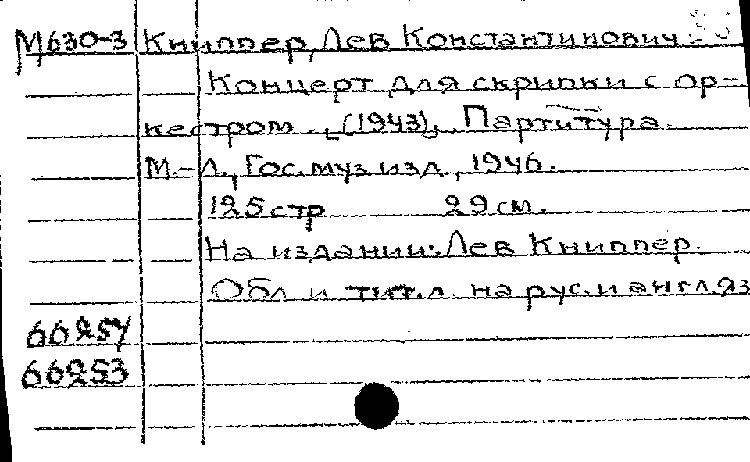 М630-3 Книппер, Лев Константинович
Концерт для скрипки с ор-
кестром. (1943). Партитура.
М.-Л., Гос. муз. изд., 1946.
125 стр 29 см.
На издании: Лев Книппер.
Обл и тит. л. на рус. и англ яз
66254
66253